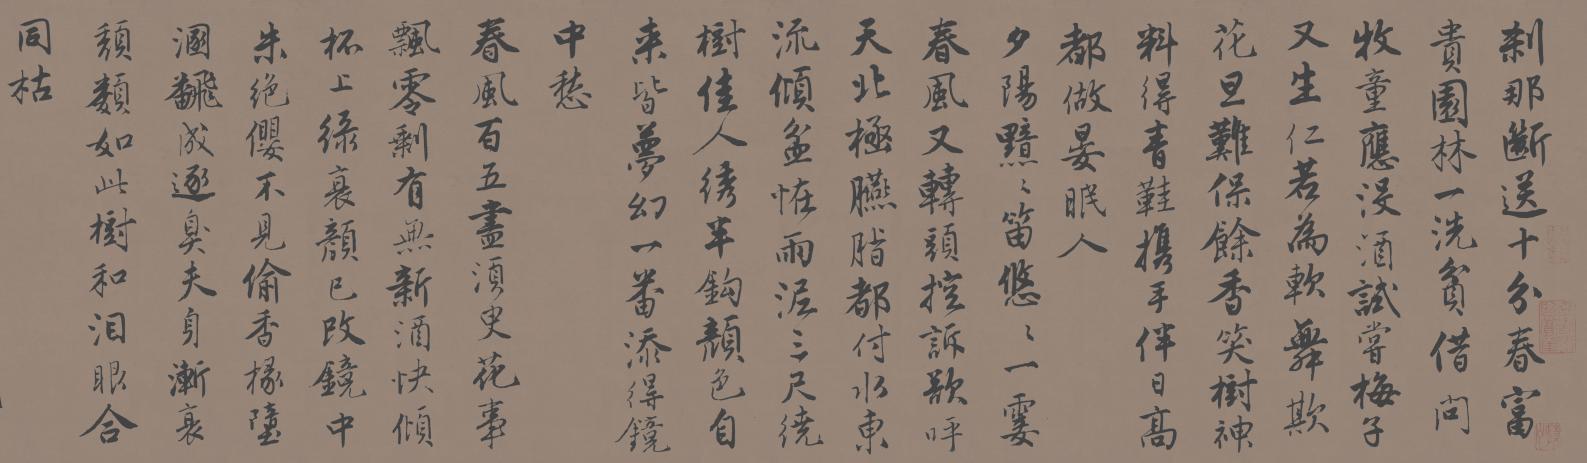 刹那斷送十分春富
貴園林一洗貧借問
牧童應没酒試嘗梅子
又生仁若為軟舞欺
花旦難保餘香笑樹神
料得青鞋攜手伴日高
都做晏眠人
夕陽黯〻笛悠〻一霎
春風又轉頭控訴欲呼
天北極臙脂都付水東
流傾盆怪雨泥三尺繞
樹佳人綉半鈎顔色自
来皆夢幻一番添得鏡
中愁
春風百五盡須臾花事
飄零剩有無新酒快傾
杯上緑衰顔已改鏡中
朱絶纓不見偷香掾墮
溷飜成逐臭夫身漸衰
頽類如此樹和泪眼合
同枯